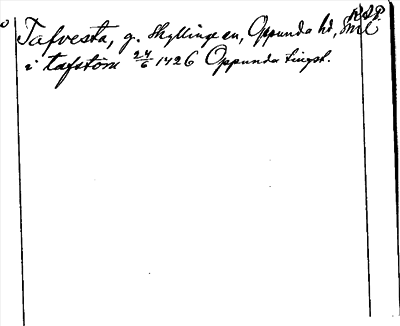 RAP.
Tafvesta, g. Skyllinge sn, Oppunda hd, Sml
i tafstom 24/6 1426 Oppunda tingst.